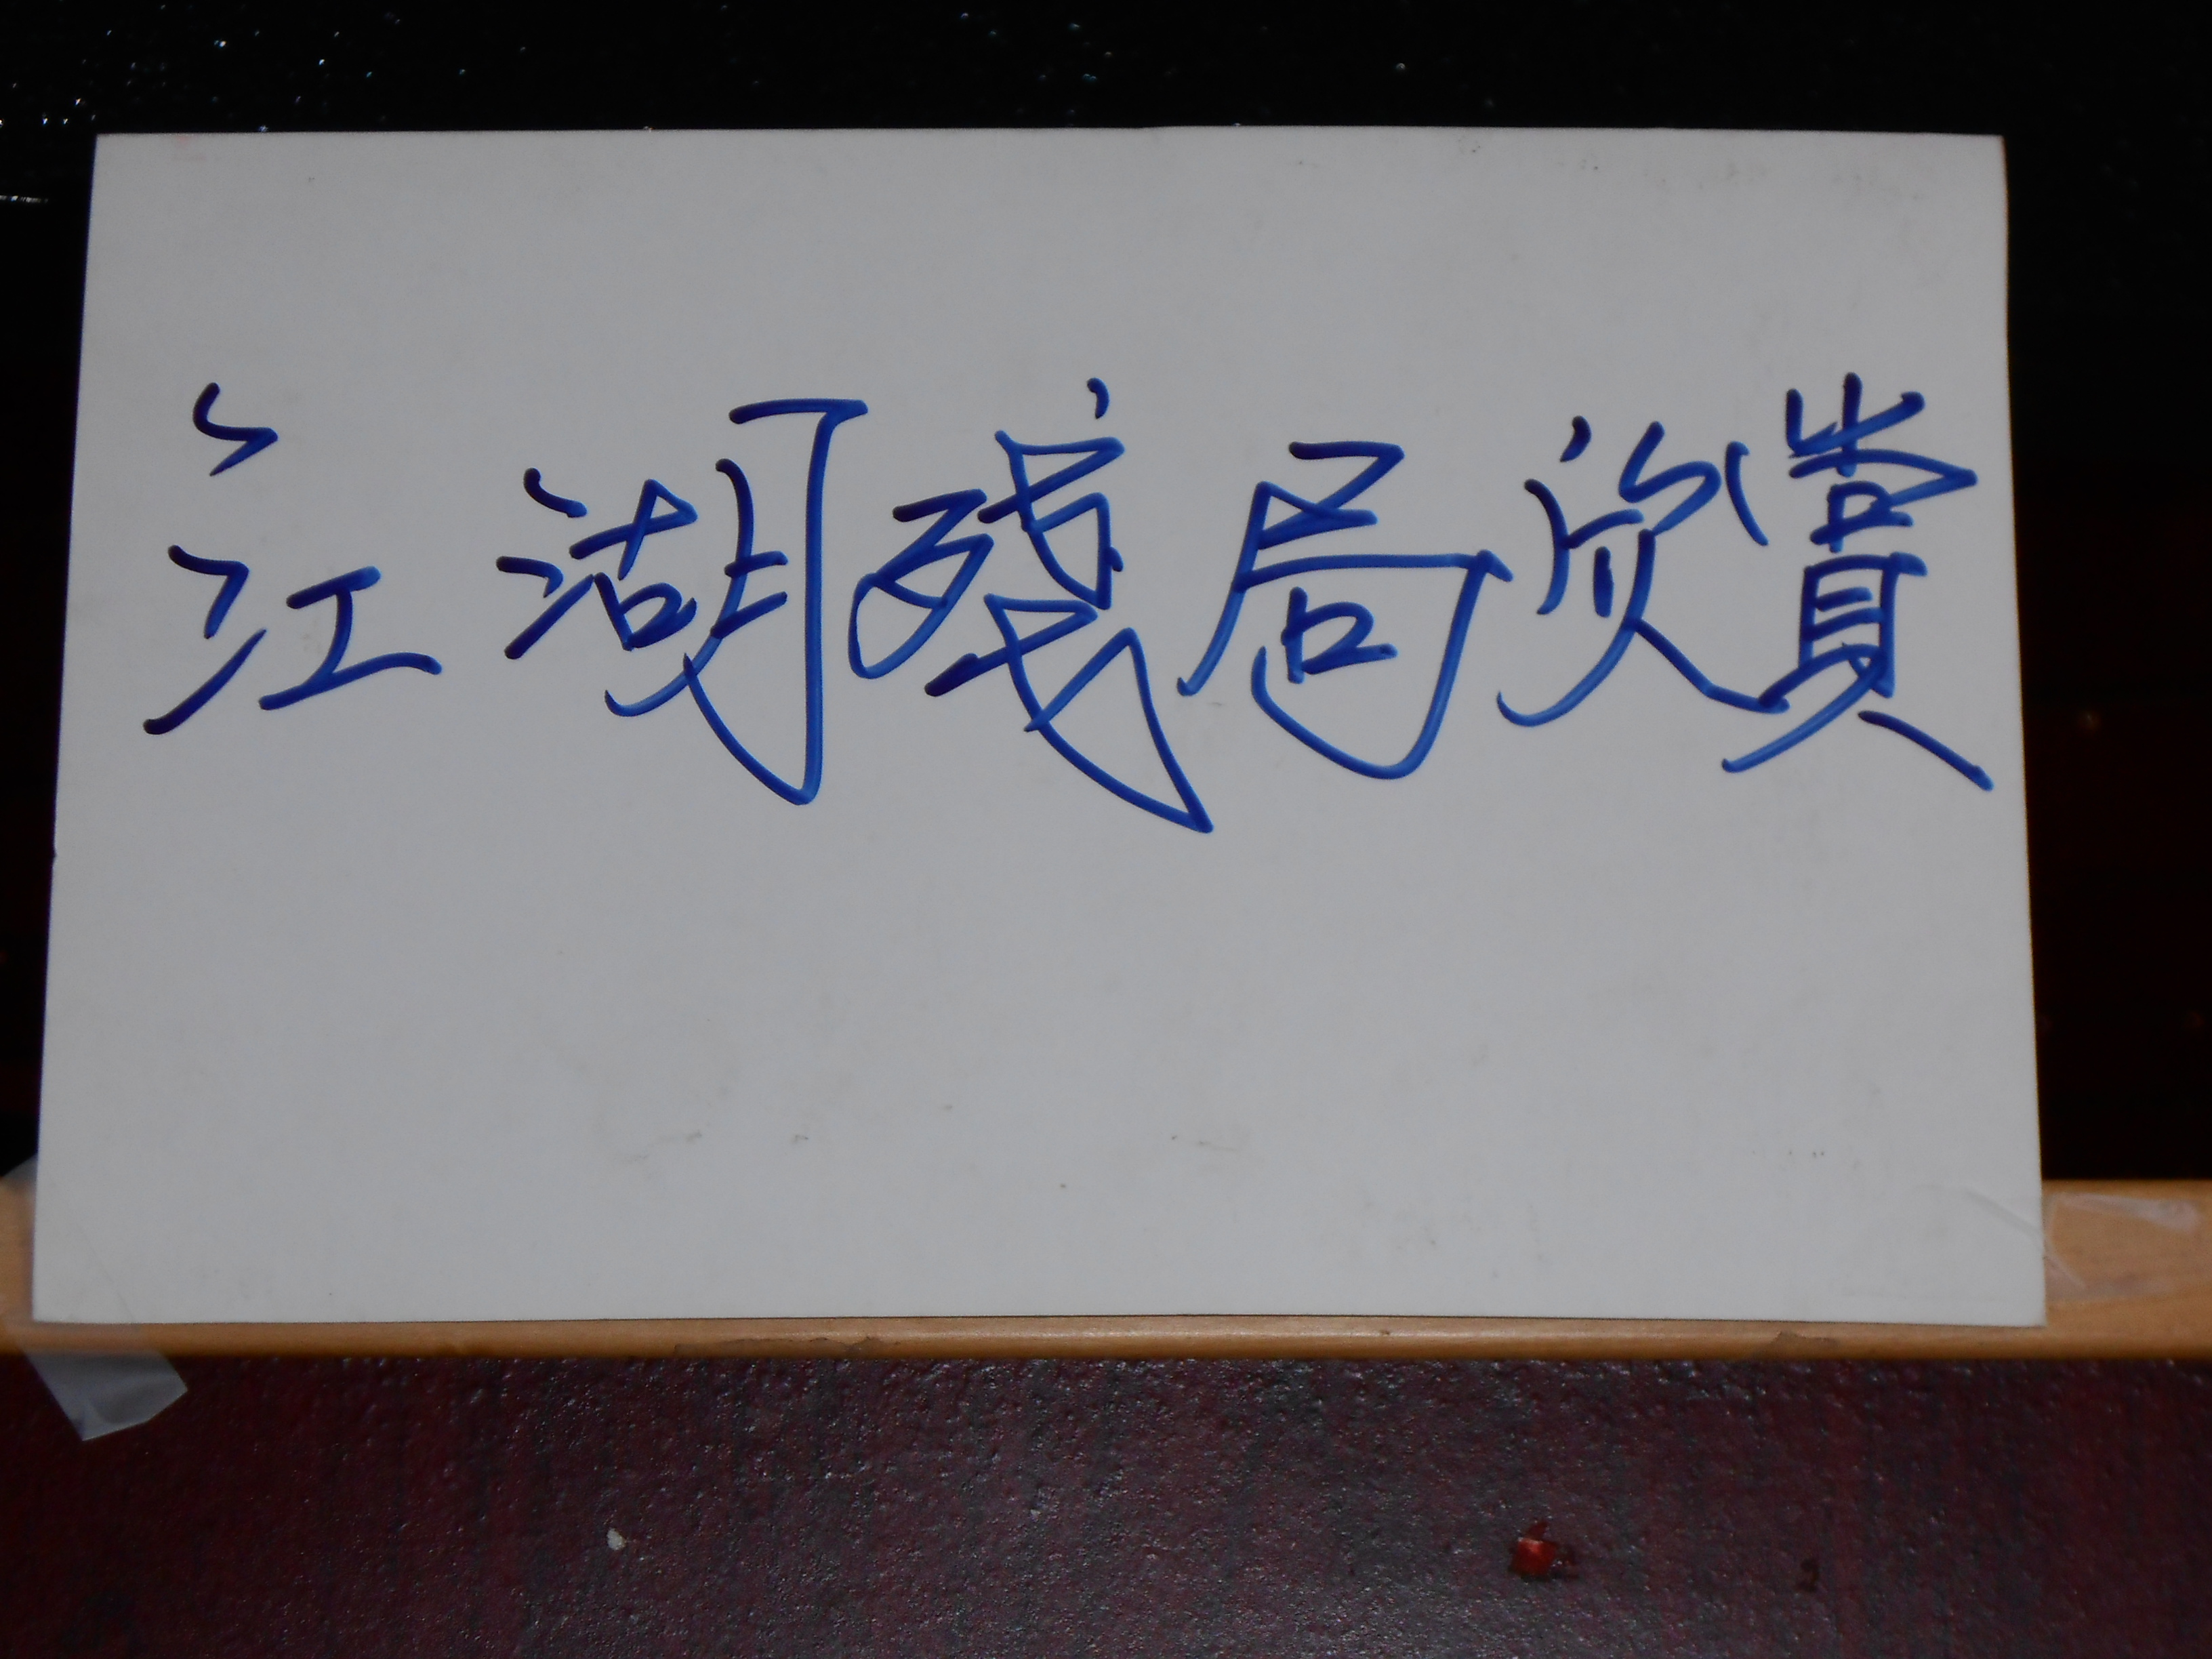 江湖殘局欣賞